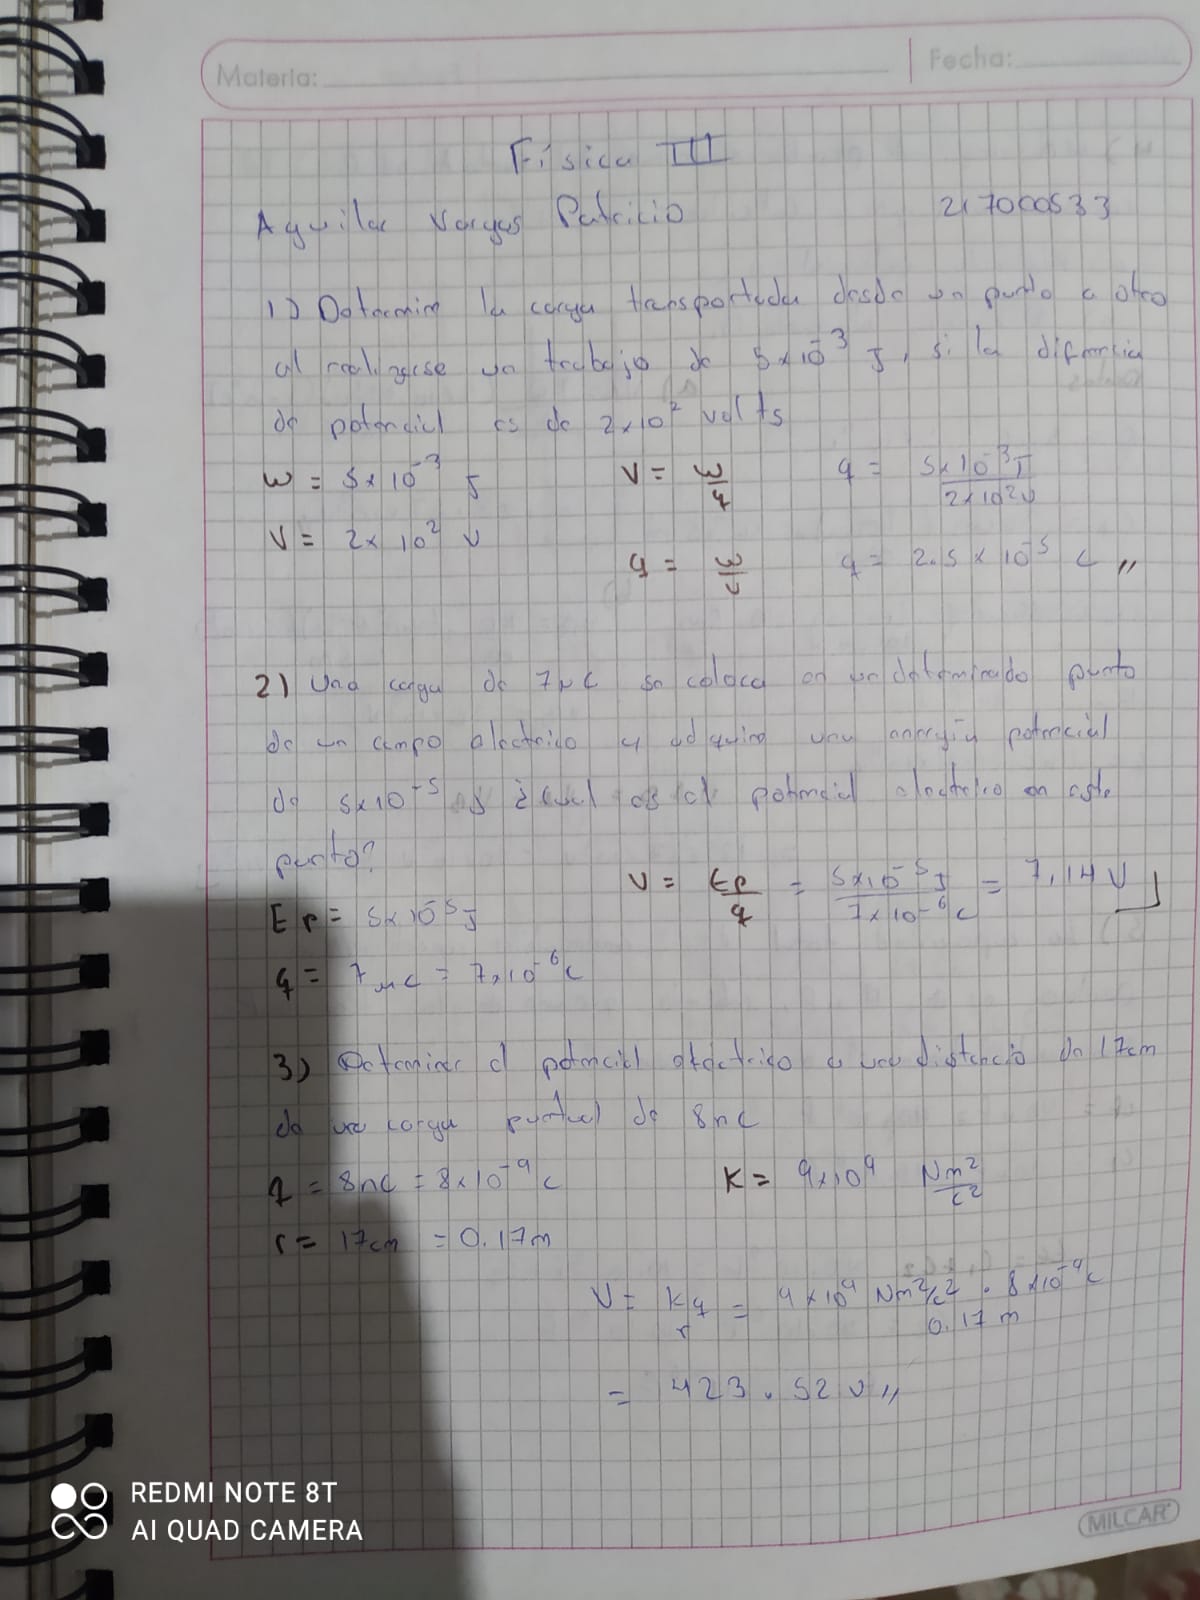 Materia:
Fecha:
Física III
Aguilar Vargas Patricio 217000533
1) Determin la carga transportada desde un punto a otro
al realizarse un trabajo de 5x10^-3 J, si la diferencia
de potencial es de 2x10^2 volts
w = 5x10^-3 J
V = w/q
q = 5x10^-3 J / 2x10^2 v
V = 2x10^2 v
q = w/v
q = 2.5 x 10^-5 c //
2) Una carga de 7μc se coloca en un determinado punto
de un campo electrico y adquiere una energía potencial
de 5x10^-5 ¿cual es el potencial electrico en este
punto?
V = Ep/q = 5x10^-5 J / 7x10^-6 c = 7,14 V
Ep = 5x10^-5 J
q = 7μc = 7x10^-6 c
3) Determiner el potencial electrico a una distancia de 17cm
de una carga puntual de 8nc
q = 8nc = 8x10^-9 c
K = 9x10^9 Nm^2/c^2
r = 17cm = 0.17m
V = Kq/r = 9x10^9 Nm^2/c^2 · 8x10^-9 c / 0.17 m
= 423.52 v //
REDMI NOTE 8T
AI QUAD CAMERA
MILCAR